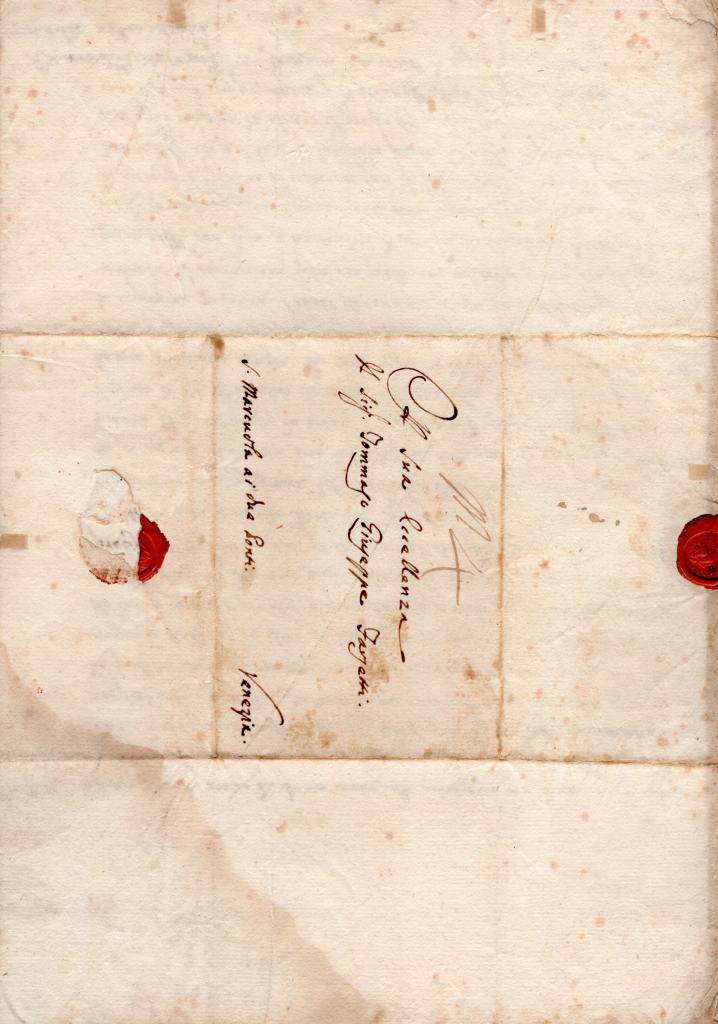 M 4
A Sua Eccellenza
Il Sig.r Tommaso Giuseppe Farsetti.
S. Marcuola ai due Ponti.
Venezia.